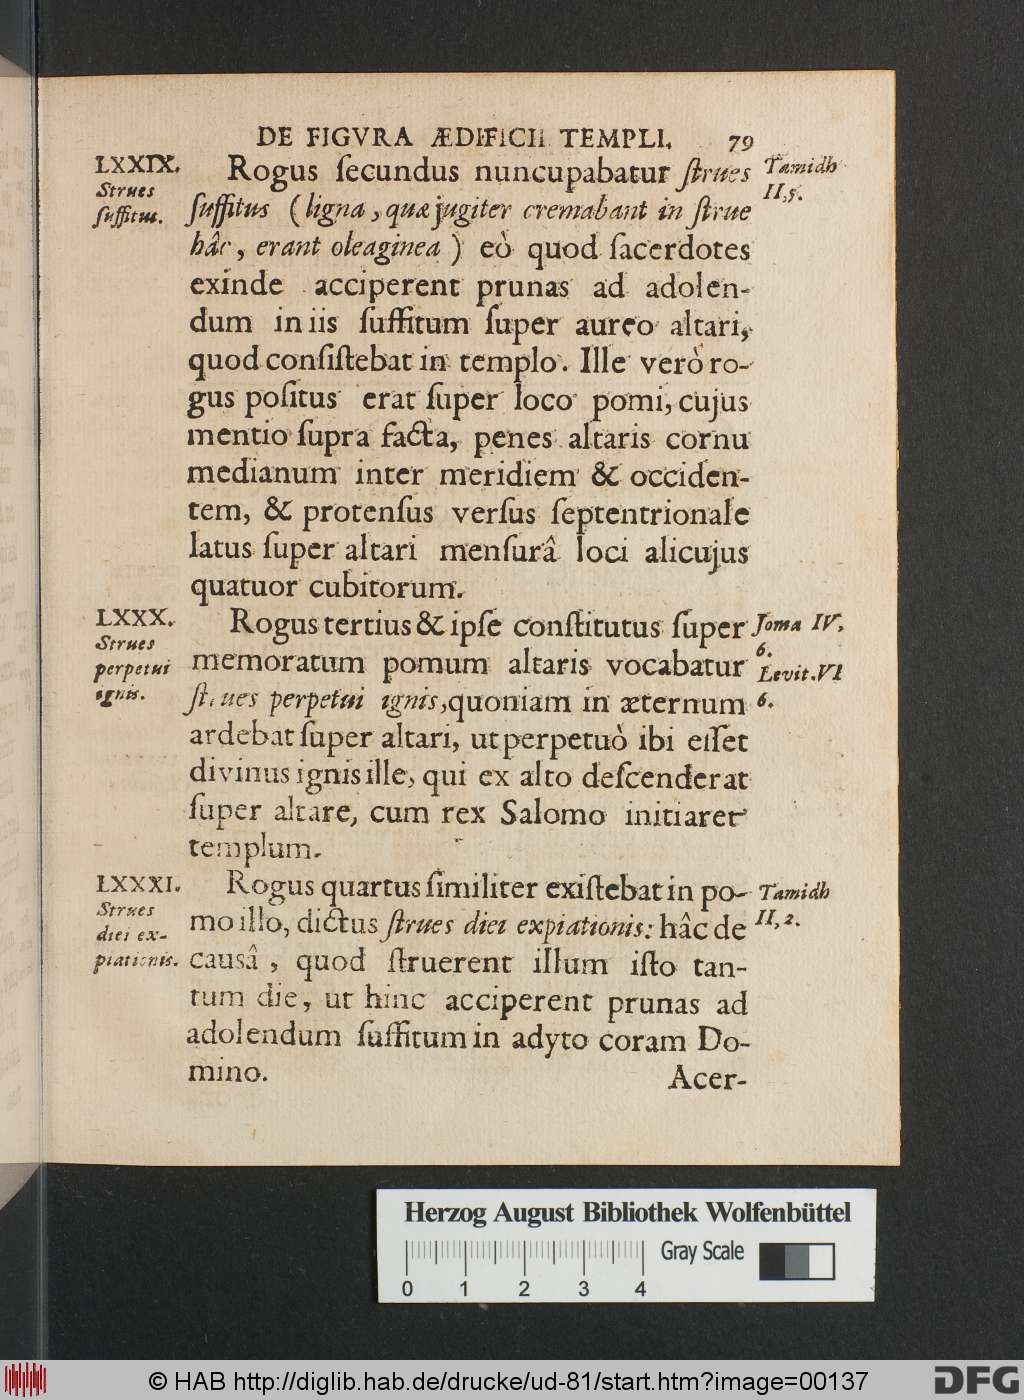 DE FIGVRA ÆDIFICII TEMPLI. 79
LXXIX.
Strues
ſuffitus.
Rogus ſecundus nuncupabatur ſtrues
ſuffitus (ligna, quæ jugiter cremabant in ſtrue
hâc, erant oleaginea) eò quod ſacerdotes
exinde acciperent prunas ad adolen-
dum in iis ſuffitum ſuper aureo altari,
quod conſiſtebat in templo. Ille verò ro-
gus poſitus erat ſuper loco pomi, cujus
mentio ſupra facta, penes altaris cornu
medianum inter meridiem & occiden-
tem, & protenſus verſus ſeptentrionale
latus ſuper altari menſurâ loci alicujus
quatuor cubitorum.
Tamidh
II,5.
LXXX.
Strues
perpetui
ignis.
Rogus tertius & ipſe conſtitutus ſuper
memoratum pomum altaris vocabatur
ſtrues perpetui ignis, quoniam in æternum
ardebat ſuper altari, ut perpetuò ibi eſſet
divinus ignis ille, qui ex alto deſcenderat
ſuper altare, cum rex Salomo initiaret
templum.
Joma IV,
6.
Levit. VI
6.
LXXXI.
Strues
diei ex-
piationis.
Rogus quartus ſimiliter exiſtebat in po-
mo illo, dictus ſtrues diei expiationis: hâc de
causâ, quod ſtruerent illum iſto tan-
tum die, ut hinc acciperent prunas ad
adolendum ſuffitum in adyto coram Do-
mino.
Tamidh
II, 2.
Acer-
Herzog August Bibliothek Wolfenbüttel
Gray Scale
0 1 2 3 4
© HAB http://diglib.hab.de/drucke/ud-81/start.htm?image=00137
DFG